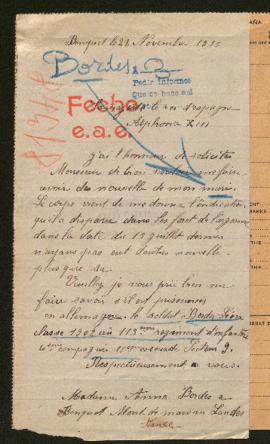 Bruquet le 28 Novembre 1915
Bordes
Pedir informes
Que se hace así
Fecho
e.a.e.
81340
Alphonse XIII
j'ai l'honneur de solicité
Monsieur de bien vouloir me faire
avoir des nouvelle de mon mari
Le corps vient de me donner l'indication
qu'il a disparu dans la foret de l'argonne
dans la date du 13 juillet dernier
n'ayant pas eut d'autre nouvelle
plus que sa.
Veuillez je vous pri bien me
faire savoir s'il est prisonnier
en allemagne le soldat Bordes Léon
classe 1902 113 eme regiment d'infanterie
compagnie 11eme
Respectueusement a vous.
Madame Anna Bordes a
Bruquet Mont de marsan Landes